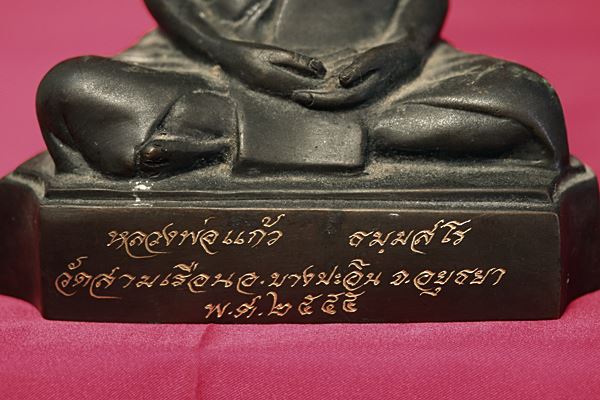 หลวงพ่อแก้ว ธมฺมสโร
วัดสามเรือน อ.บางปะอิน จ.อยุธยา
พ.ศ.๒๕๕๕